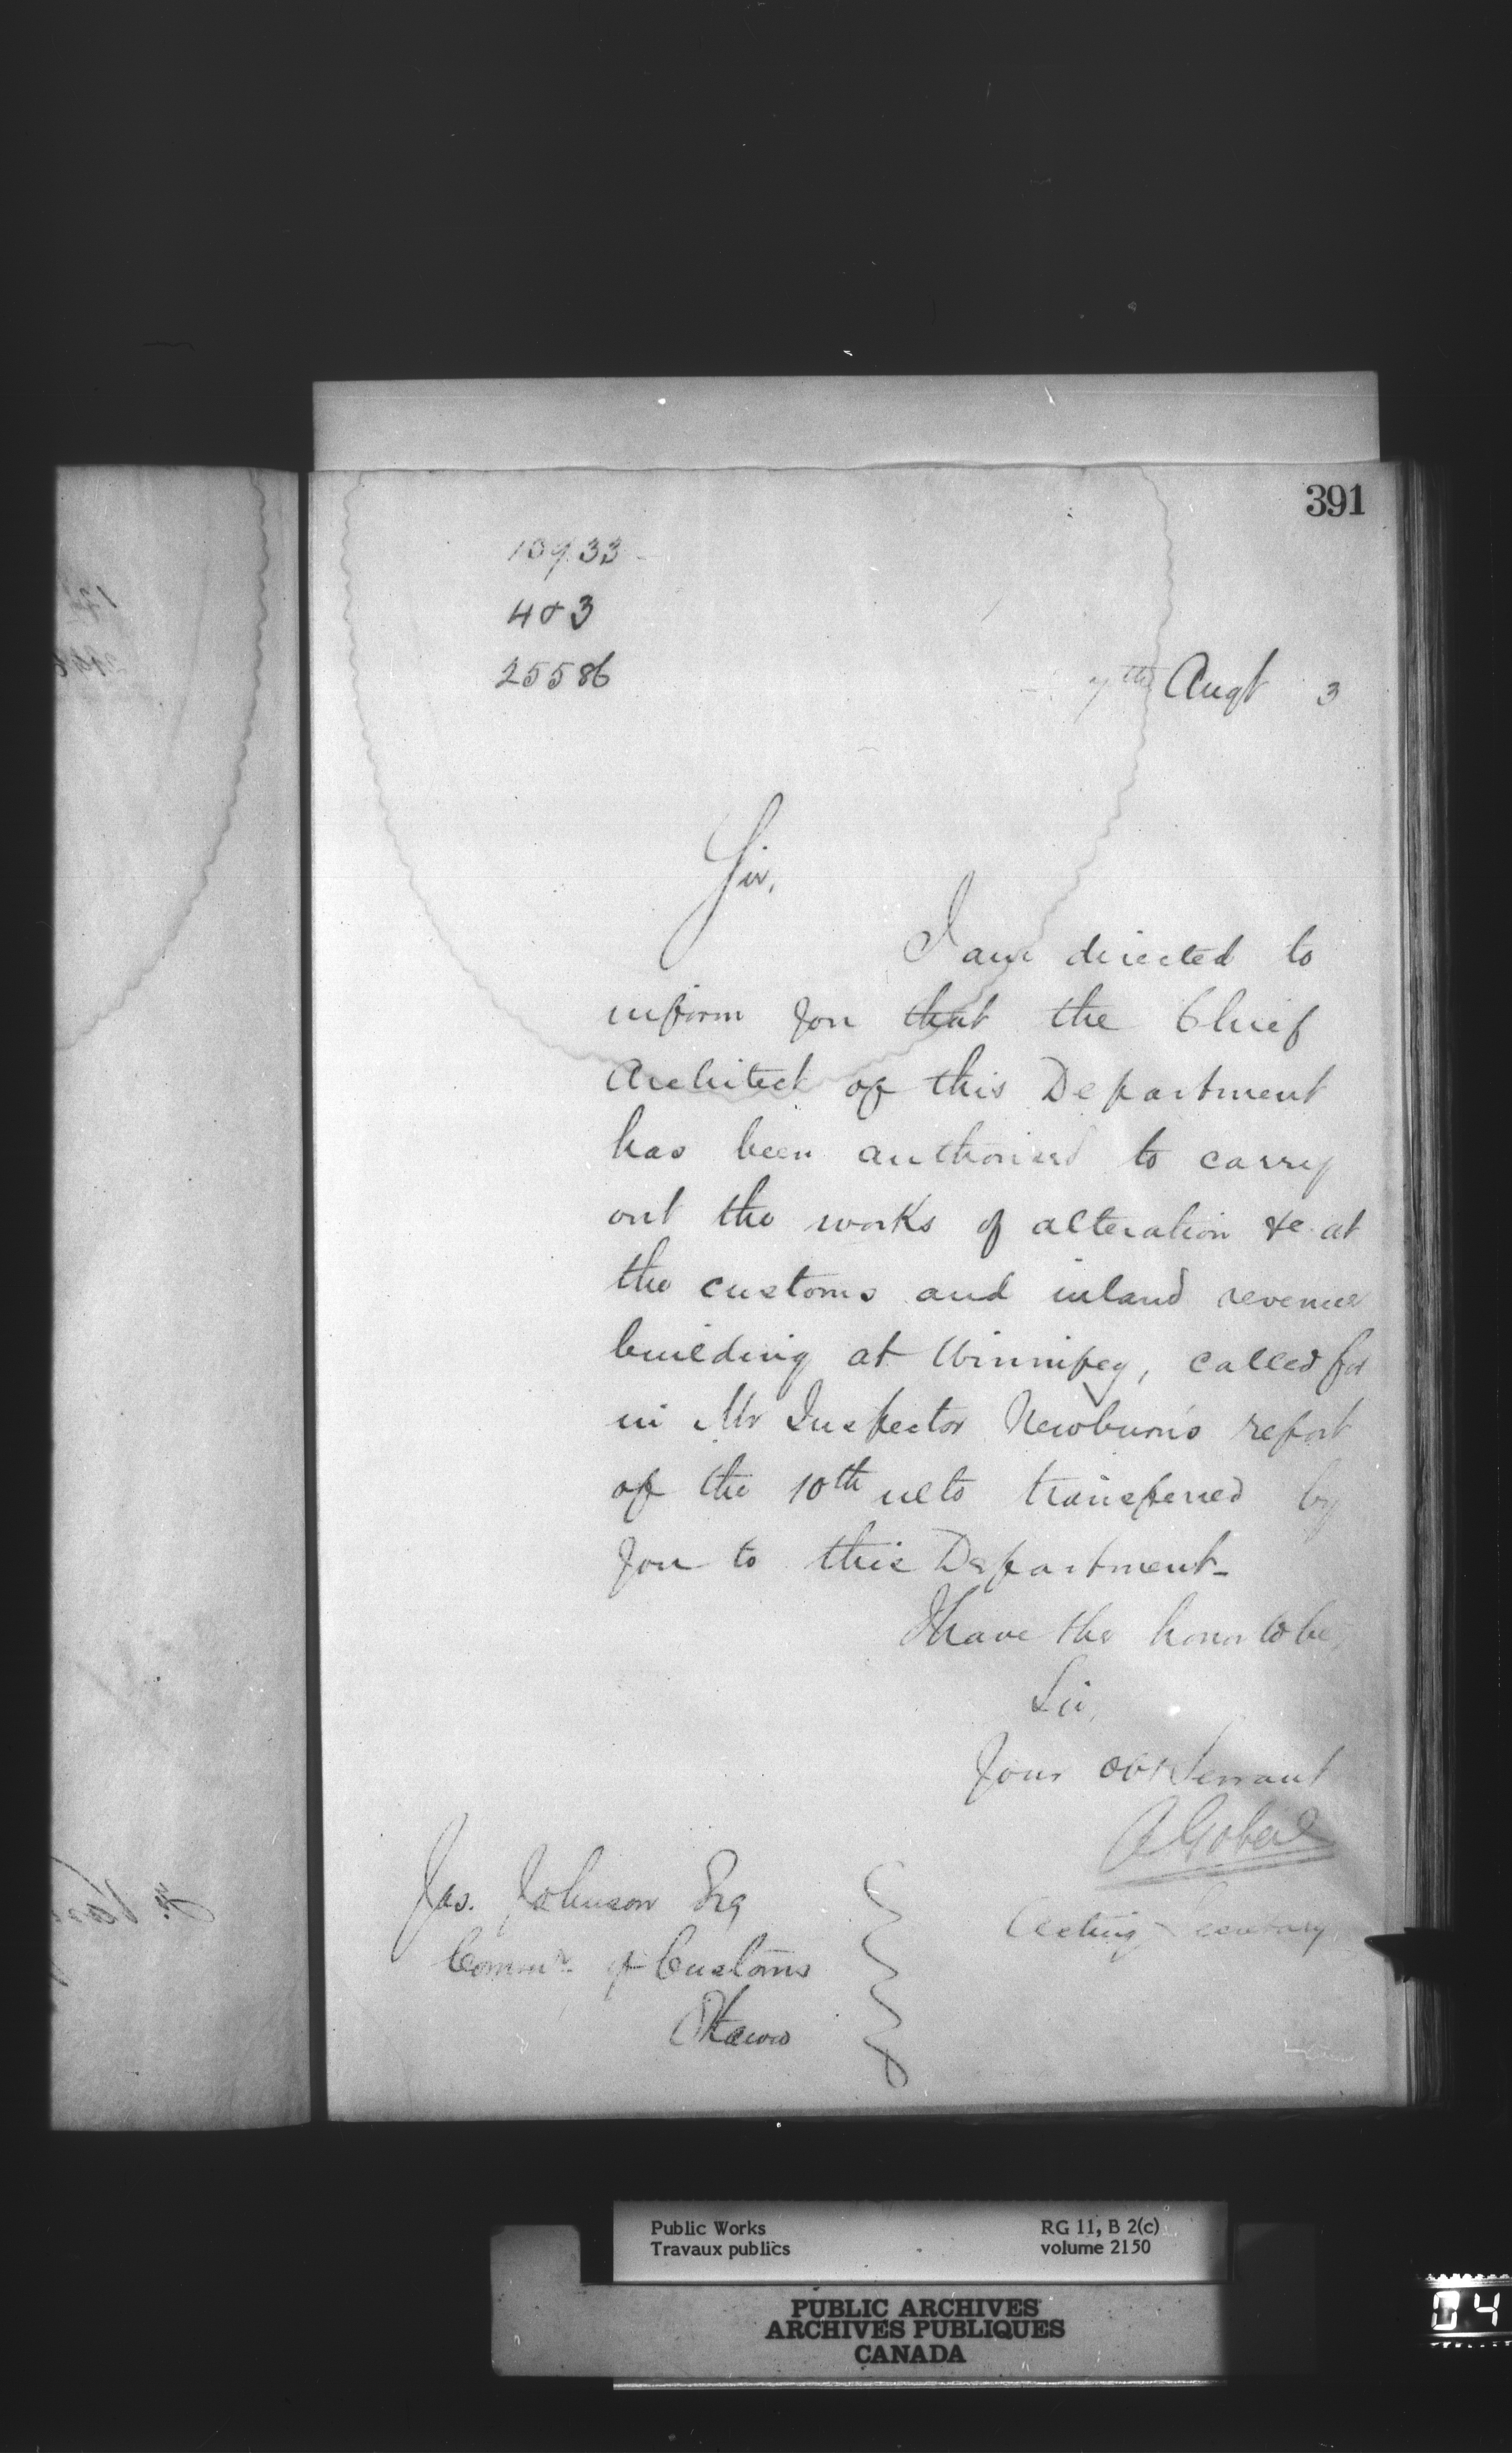 391
10933
4 & 3
25586
7th Augt 3
Sir,
I am directed to
inform you that the Chief
Architect of this Department
has been authorised to carry
out the works of alteration &c at
the customs and inland revenue
building at Winnipeg, called for
in Mr Inspector Newburn's report
of the 10th ulto transferred by
you to this Department_
I have the honor to be,
Sir,
Your obt Servant
A Gobeil
Acting Secretary
Jas. Johnson Esq
Commr. of Customs
Ottawa
Public Works
Travaux publics
RG 11, B 2(c)
volume 2150
PUBLIC ARCHIVES
ARCHIVES PUBLIQUES
CANADA
04